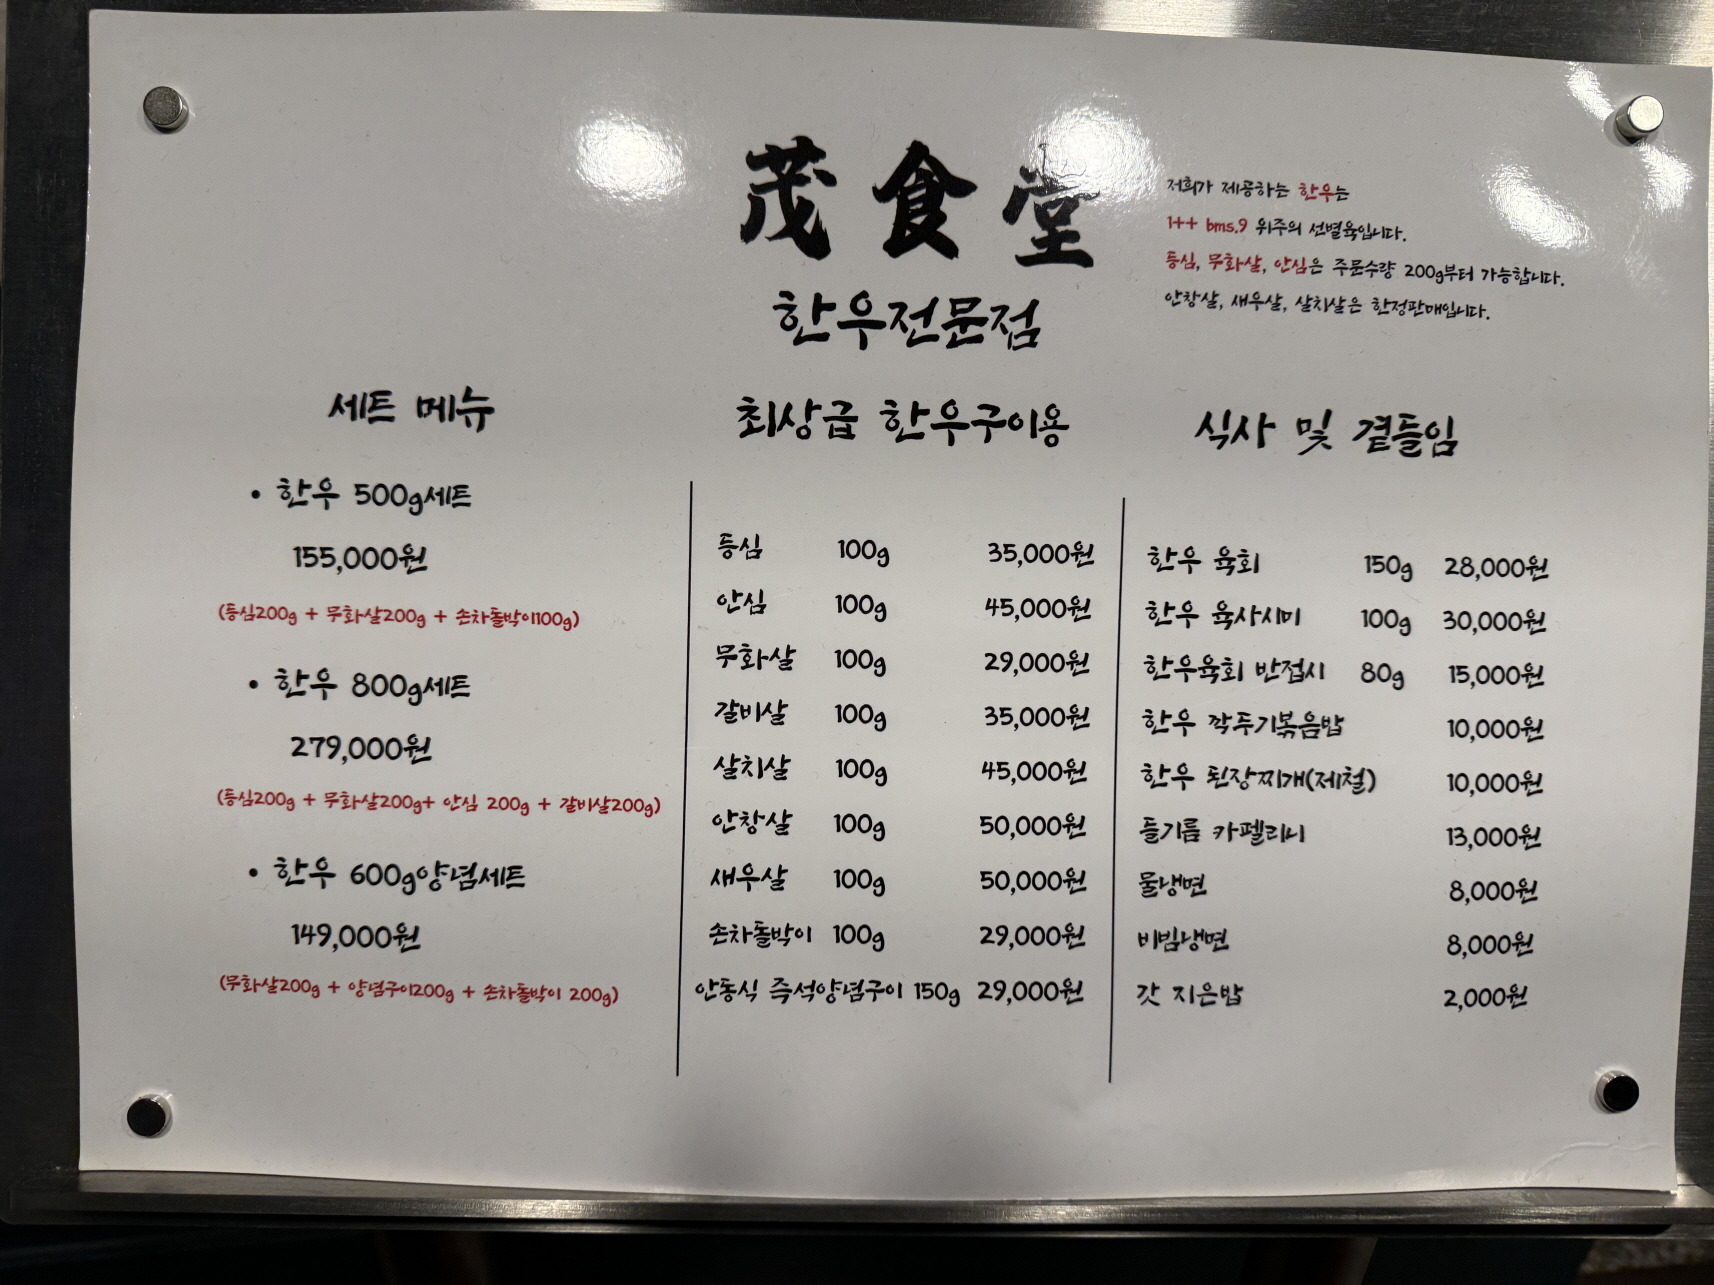 茂食堂
한우전문점
저희가 제공하는 한우는
1++ bms.9 위주의 선별육입니다.
등심, 무화살, 안심은 주문수량 200g부터 가능합니다.
안창살, 새우살, 살치살은 한정판매입니다.
세트 메뉴
• 한우 500g세트
155,000원
(등심200g + 무화살200g + 손차돌박이100g)
• 한우 800g세트
279,000원
(등심200g + 무화살200g+ 안심 200g + 갈비살200g)
• 한우 600g양념세트
149,000원
(무화살200g + 양념구이200g + 손차돌박이 200g)
최상급 한우구이용
등심 100g 35,000원
안심 100g 45,000원
무화살 100g 29,000원
갈비살 100g 35,000원
살치살 100g 45,000원
안창살 100g 50,000원
새우살 100g 50,000원
손차돌박이 100g 29,000원
안동식 즉석양념구이 150g 29,000원
식사 및 곁들임
한우 육회 150g 28,000원
한우 육사시미 100g 30,000원
한우육회 반접시 80g 15,000원
한우 깍두기볶음밥 10,000원
한우 된장찌개(제철) 10,000원
들기름 카펠리니 13,000원
물냉면 8,000원
비빔냉면 8,000원
갓 지은밥 2,000원